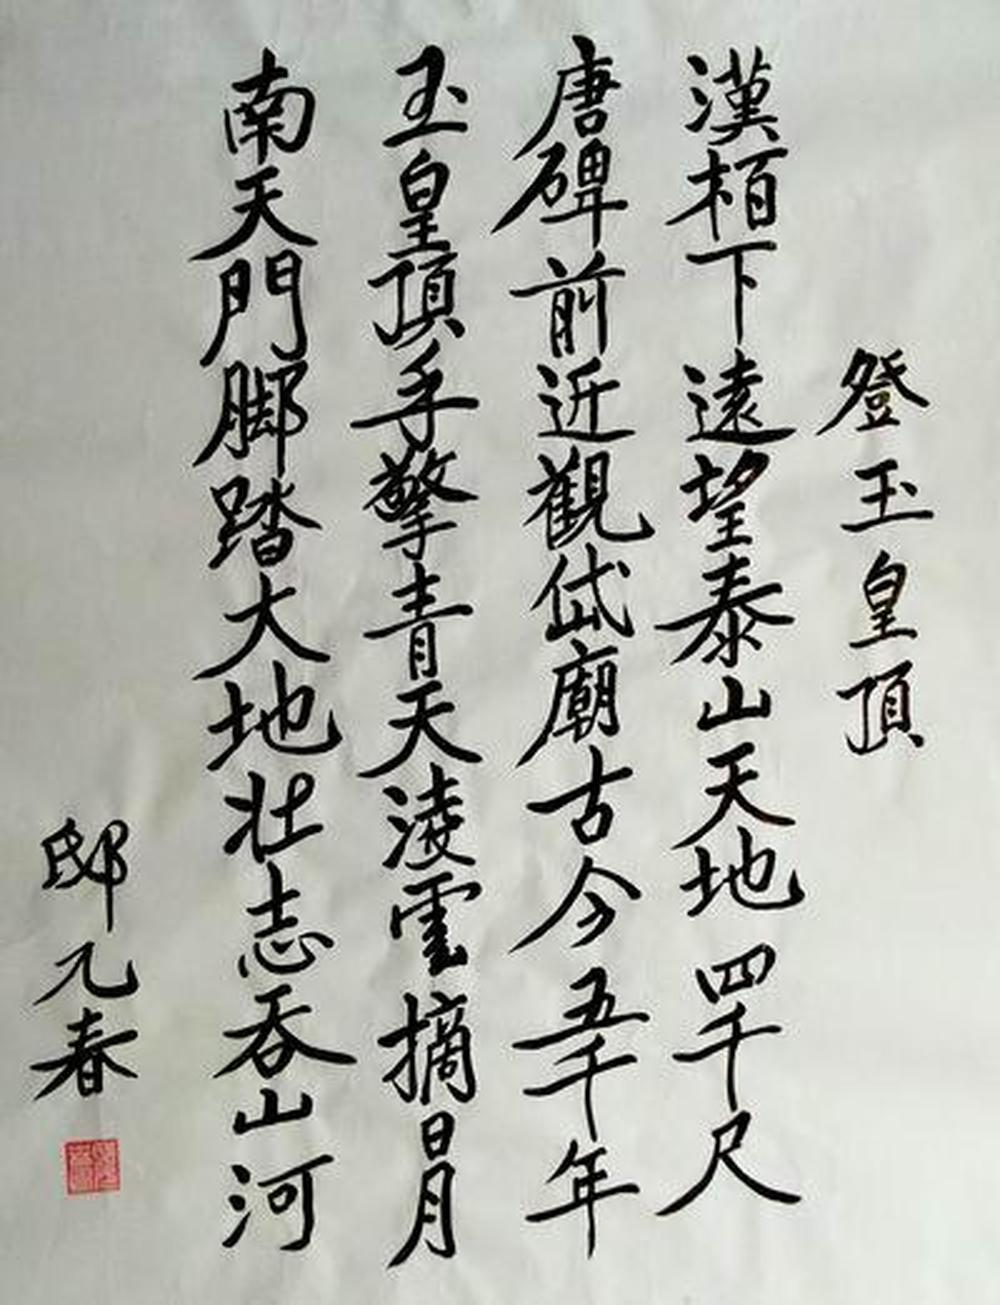 登玉皇頂
漢柏下遠望泰山天地四千尺
唐碑前近觀岱廟古今五千年
玉皇頂手擎青天淩雲摘日月
南天門脚踏大地壯志吞山河
邸元春